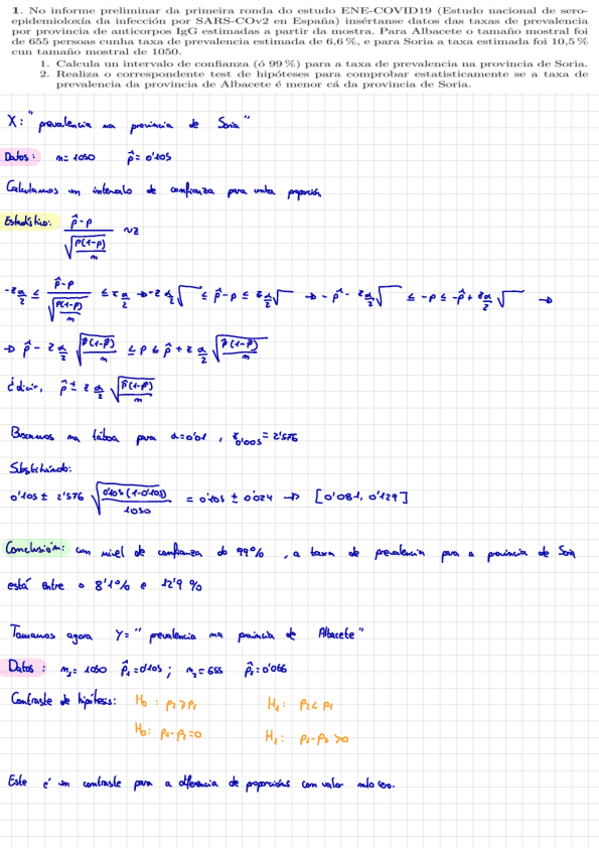 1. No informe preliminar da primeira ronda do estudo ENE-COVID19 (Estudo nacional de sero-
epidemioloxía da infección por SARS-COv2 en España) insértanse datos das taxas de prevalencia
por provincia de anticorpos IgG estimadas a partir da mostra. Para Albacete o tamaño mostral foi
de 655 persoas cunha taxa de prevalencia estimada de 6,6 %, e para Soria a taxa estimada foi 10,5 %
cun tamaño mostral de 1050.
1. Calcula un intervalo de confianza (ó 99 %) para a taxa de prevalencia na provincia de Soria.
2. Realiza o correspondente test de hipóteses para comprobar estatisticamente se a taxa de
prevalencia da provincia de Albacete é menor cá da provincia de Soria.
X: "prevalencia na provincia de Soria"
Datos: n= 1050 p̂= 0'105
Calculamos un intervalo de confianza para unha proporción
Estadístico: (p̂-p)/√(p(1-p)/n) ~Z
-zα/2 ≤ (p̂-p)/√(p(1-p)/n) ≤ zα/2 → -zα/2 √ ≤ p̂-p ≤ zα/2 √ → -p̂ - zα/2 √ ≤ -p ≤ -p̂ + zα/2 √ →
→ p̂ - zα/2 √(p̂(1-p̂)/n) ≤ p ≤ p̂ + zα/2 √(p̂(1-p̂)/n)
é dicir, p̂ ± zα/2 √(p̂(1-p̂)/n)
Buscamos na táboa para α=0'01, z0'005 = 2'576
Substituíndo:
0'105 ± 2'576 √(0'105(1-0'105)/1050) = 0'105 ± 0'024 → [0'081, 0'129]
Conclusión: cun nivel de confianza do 99%, a taxa de prevalencia para a provincia de Soria
está entre o 8'1% e 12'9 %
Tomamos agora Y= "prevalencia na provincia de Albacete"
Datos: n1= 1050 p̂1=0'105; n2= 655 p̂2=0'066
Contraste de hipótesis: H0: p2≥p1 H1: p2< p1
H0: p1-p2=0 H1: p1-p2 >0
Este é un contraste para a diferencia de proporcións con valor nulo cero.